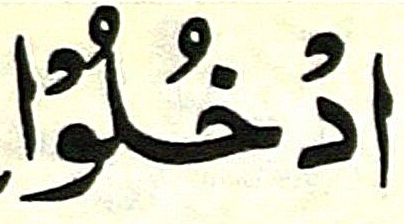 ادْخُلُوْا